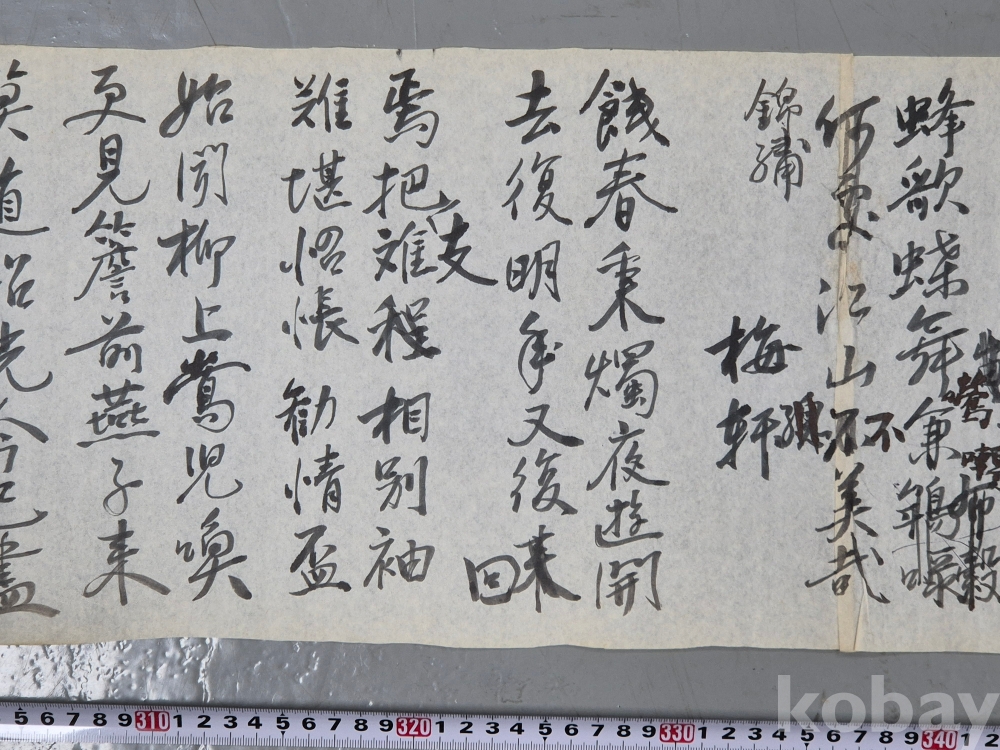 蜂歌蝶舞兼鵑啼
鶯
布穀
何處江山不美哉
不
錦繡
梅軒
餞春秉燭夜遊開
去復明年又復来
回
焉把難程相別袖
支
難堪怊悵勸情盃
始聞柳上鶯児喚
更見簷前燕子来
莫道韶光今已盡
kobay
5 6 7 8 9 310 1 2 3 4 5 6 7 8 9 320 1 2 3 4 5 6 7 8 9 330 1 2 3 4 5 6 7 8 9 340 1 2